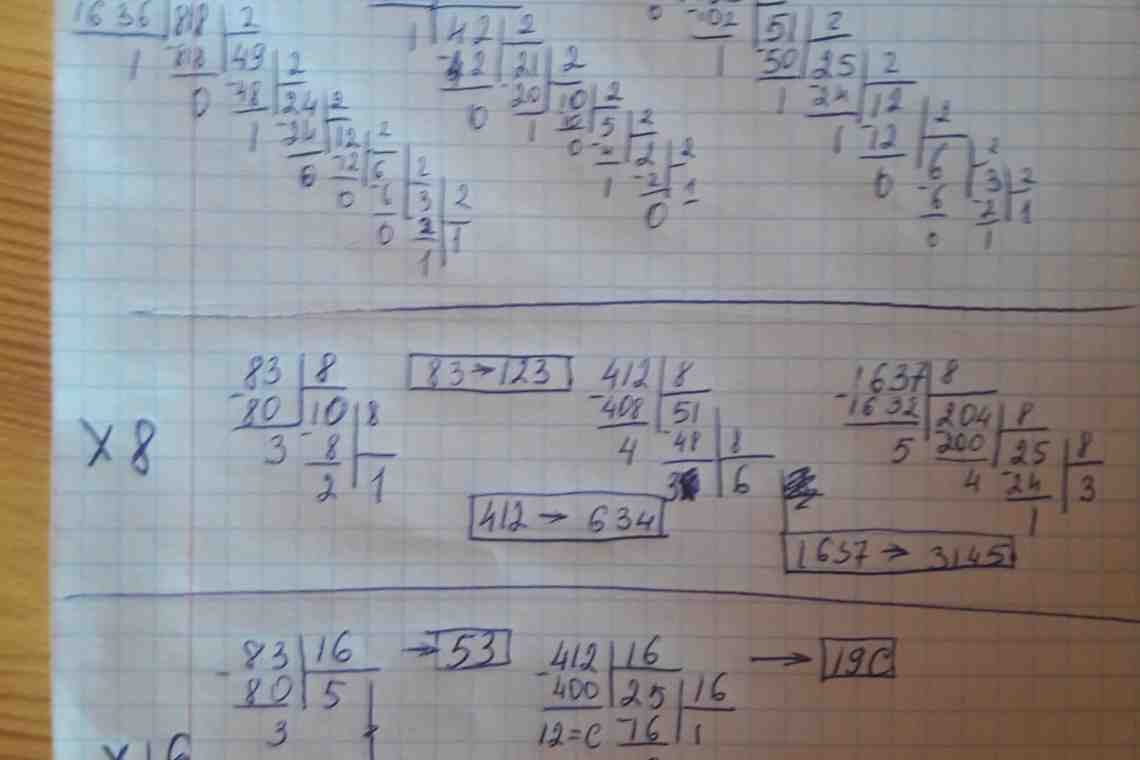 1636 818 2 42 2 -102 51 2
1 -818 49 2 -42 21 2 1 -50 25 2
0 -48 24 2 0 -20 10 2 1 -24 12 2
1 -24 12 2 1 10 5 2 1 -12 6 2
0 -12 6 2 0 2 2 0 -6 3 2
0 -6 3 2 1 -2 1 0 -2 1
0 2 1 0 1
1
83 8 83 → 123 412 8 1637 8
-80 10 8 -408 51 -1632 204 8
×8 3 -8 1 4 -48 8 5 200 25 8
2 3 6 4 -24 3
412 → 634 1
1637 → 3145
-83 16 → 53 -412 16 → 19C
80 5 400 25 16
3 12=C 16 1
×16